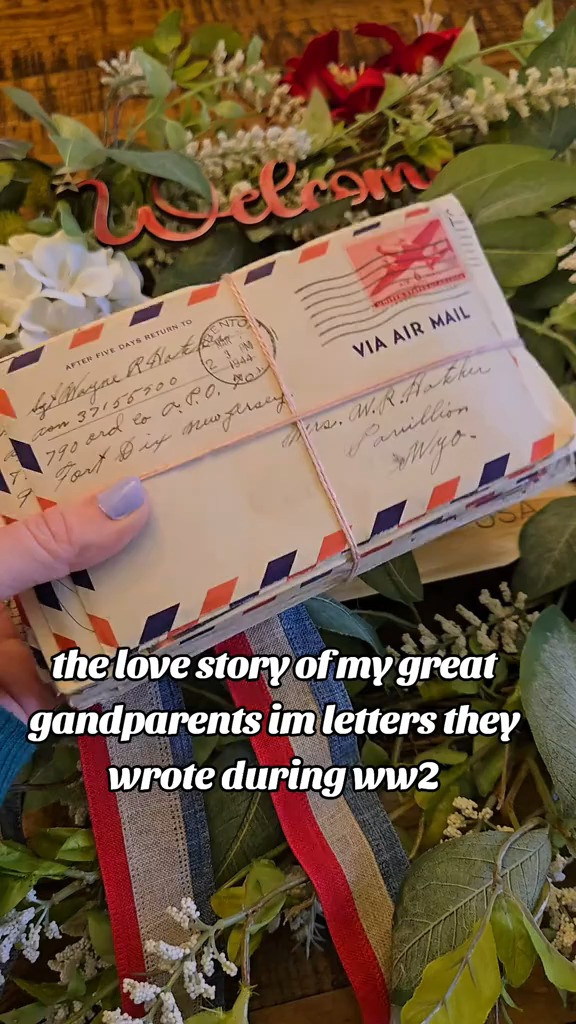 Welcom
AFTER FIVE DAYS RETURN TO
Sgt Wayne R Hatch
asn 37155500
790 ord co A.P.O.
Fort Dix New Jersey
TRENTON
1944
6
VIA AIR MAIL
Mrs. W. R. Hatcher
Pavillion
Wyo.
USA
the love story of my great
gandparents im letters they
wrote during ww2